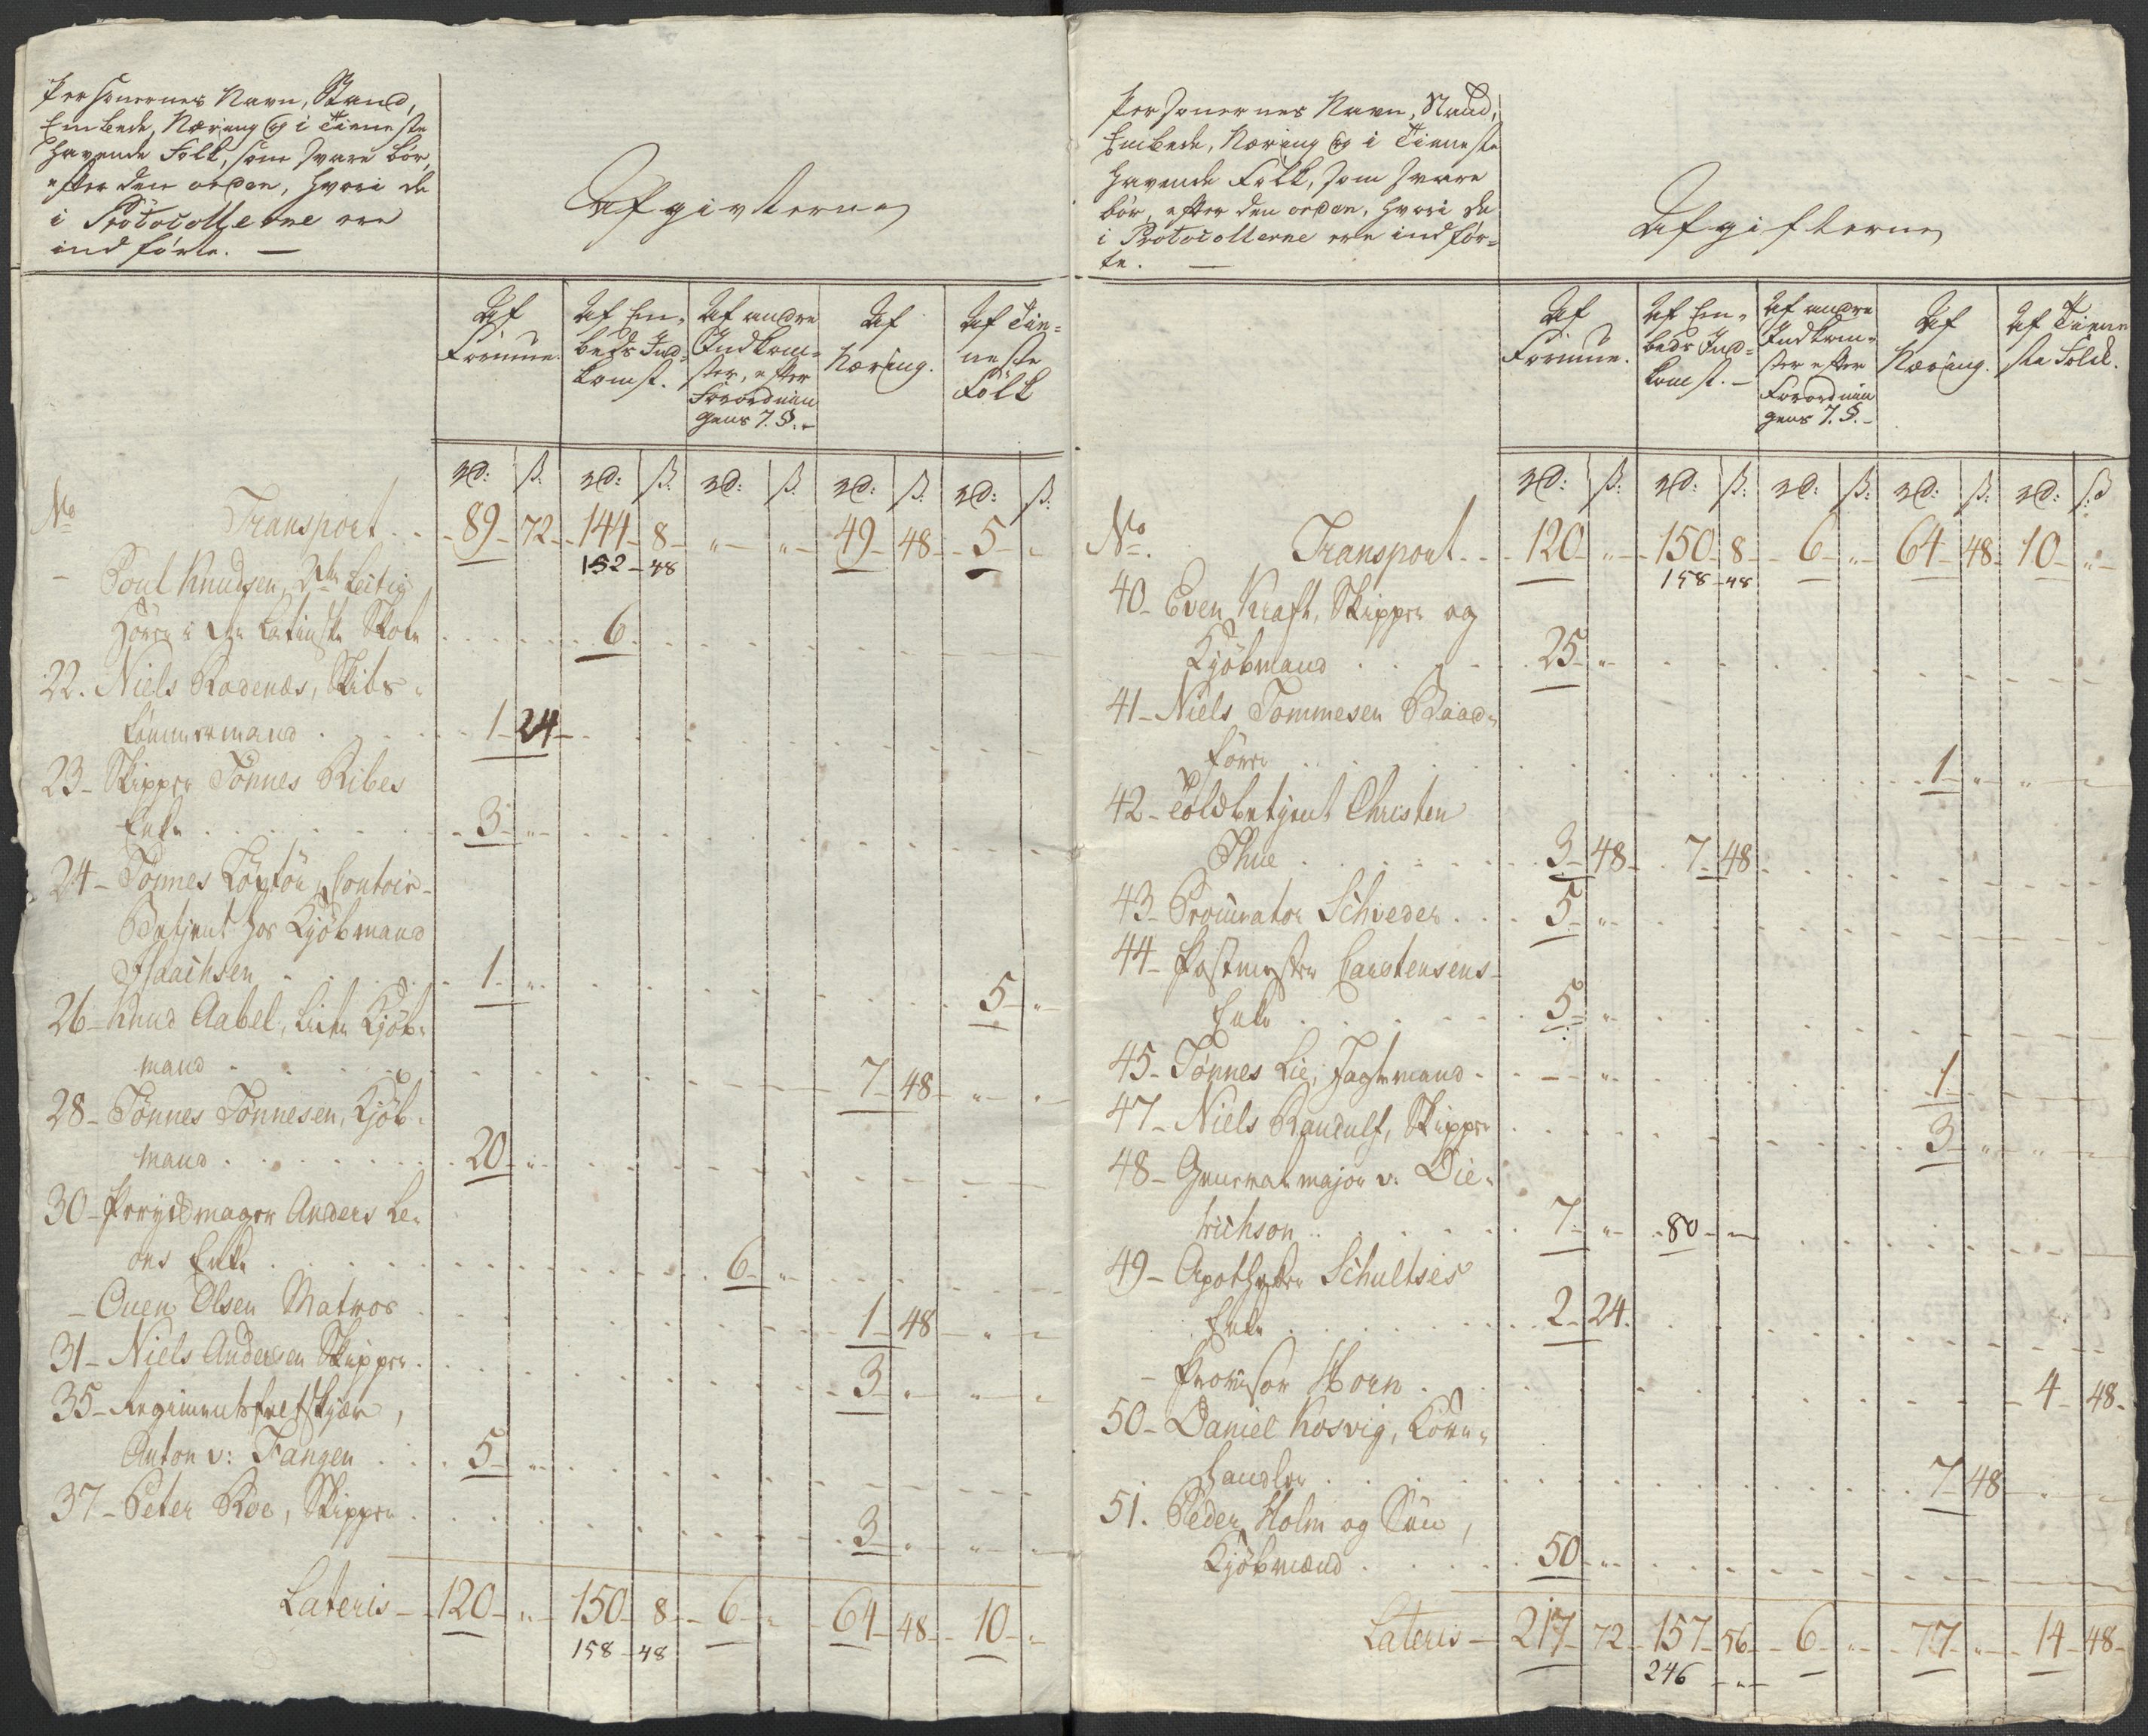 Personernes Navn, Stand,
Embede, Næring og i Tieneste
havende Folk, som svare bör,
efter den orden, hvori de
i Protocollerne ere
indförte. —
Afgivterne
Af Formue.
Af Embeds Indkomst.
Af andre Indkomster, efter Forordningens 7. §. -
Af Næring.
Af Tieneste Folk
rd: ß. rd: ß. rd: ß. rd: ß. rd: ß.
No Transport . . 89 - 72 - 144 - 8 - " - " - 49 - 48 - 5 - "
152 - 48
- Poul Knudsen,
Hörer i den Latinske Skole . . . 6 .
22. Niels Rodenæs, Skibs-
tömmermand . . . 1 - 24 -
23 - Skipper Tönnes Ribes
Enke . . . 3 - " -
24 - Tönnes Contoir-
Betjent hos Kjöbmand
Isaachsen . . . 1 - " . . . 5 - "
26 - Knud Aabel, Kjöb-
mand . . . 7 - 48 - " - "
28 - Tönnes Tönnesen, Kjöb-
mand . . . 20 - " -
30 - Perygmager Anders Le-
ons Enke . . . 6 - " -
- Ouen Olsen Matros . . . 1 - 48 - " -
31 - Niels Andersen Skipper . . . 3 - " - " - "
35 - Regimentsfeltskjær,
Anton v: Fangen . . . 5 - " -
37 - Peter Roe, Skipper . . . 3 - " - " - "
Lateris - 120 - " - 150 - 8 - 6 - " - 64 - 48 - 10 - "
158 - 48
Personernes Navn, Stand,
Embede, Næring og i Tieneste
havende Folk, som svare
bör, efter den orden, hvori de
i Protocollerne ere indför=
te. —
Afgifterne
Af Formue.
Af Embeds Indkomst. -
Af andre Indkomster efter Forordningens 7. §. -
Af Næring.
Af Tieneste Folk.
rd: ß: rd: ß: rd: ß: rd: ß: rd: ß
No. Transport . . . 120 - " - 150 - 8 - 6 - " - 64 - 48 - 10 - "
158 - 48
40 - Even Kraft, Skipper og
Kjöbmand . . . 25 - " -
41 - Niels Tommesen Baad-
förer . . . 1 - " - " -
42 - Toldbetjent Christen
Thue . . . 3 - 48 - 7 - 48
43 - Procurator Schreder . . . 5 - "
44 - Postmester Carstensens
Enke . . . 5 - "
45 - Tönnes Lie, Jagtemand . . . 1 -
47 - Niels Randulf, Skipper . . . 3 - " - " -
48 - Generalmajor v: Die-
trichson . . . 7 - " - 80 - " -
49 - Apotheker Schultses
Enke . . . 2 - 24 .
- Provisor Horn . . . 4 - 48 -
50 - Daniel Kosvig, Korn-
handler . . . 7 - 48 -
51. Peder Holm og Sön,
Kjöbmænd . . . 50 - " -
Lateris - 217 - 72 - 157 - 56 - 6 - " - 77 - " - 14 - 48 -
246 - " -